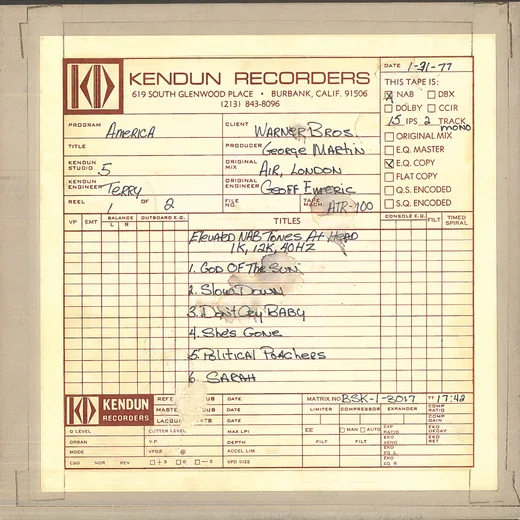 DATE 1-31-77
KENDUN RECORDERS
619 SOUTH GLENWOOD PLACE • BURBANK, CALIF. 91506
(213) 843-8096
THIS TAPE IS:
NAB DBX
DOLBY CCIR
15 IPS 2 TRACK
MONO
ORIGINAL MIX
E.Q. MASTER
E.Q. COPY
FLAT COPY
Q.S. ENCODED
S.Q. ENCODED
PROGRAM America
CLIENT WARNER BROS.
TITLE
PRODUCER GEORGE MARTIN
KENDUN STUDIO 5
ORIGINAL MIX AIR, LONDON
KENDUN ENGINEER TERRY
ORIGINAL ENGINEER GEOFF EMERIC
REEL 1 OF 2
FILE NO.
TAPE MACH. ATR-100
VP EMT BALANCE OUTBOARD E.Q. TITLES CONSOLE E.Q. FILT TIMED SPIRAL
L R
NAB TONES AT HEAD
1K, 12K, 40HZ
1. GOD OF THE SUN
2. SLOW DOWN
3. DON'T CRY BABY
4. SHE'S GONE
5. POLITICAL POACHERS
6. SARAH
KENDUN RECORDERS
DATE
DATE
DATE
MATRIX NO BSK-1-3017 TT 17:42
LIMITER COMPRESSOR EXPANDER COMP RATIO
COMP GAIN
O LEVEL CUTTER LEVEL MAX LPI EE MAN AUTO EXP RATIO EKO DECAY
URBAN V.P. DEPTH FILT FILT EKO SEND EKO RET
MODE VPOS @ ACCEL LIM EKO EQ L
CSG NOR REV +3 0 -3 SPD SIZE EKO EQ R